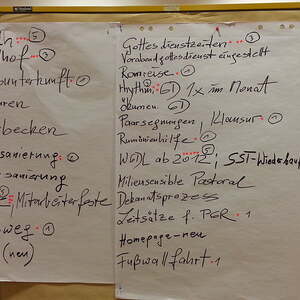 ⑤
hof ③
unterkunft ②
uren
becken
sanierung ②
sanierung
Mitarbeiterfeste
weg ①
(neu)
Gottesdienstzeiten ③
Vorabendgottesdienst eingestellt
Romreise ①
Rhythm. GD 1x im Monat
Ökumen. GD
Paarsegnungen, Klausur ①
Rumänienhilfe ①
WGDL ab 2012; SST-Wiederkauf
Milieusensible Pastoral
Dekanatsprozess
Leitsätze f. PGR 1
Homepage-neu
Fußwallfahrt 1